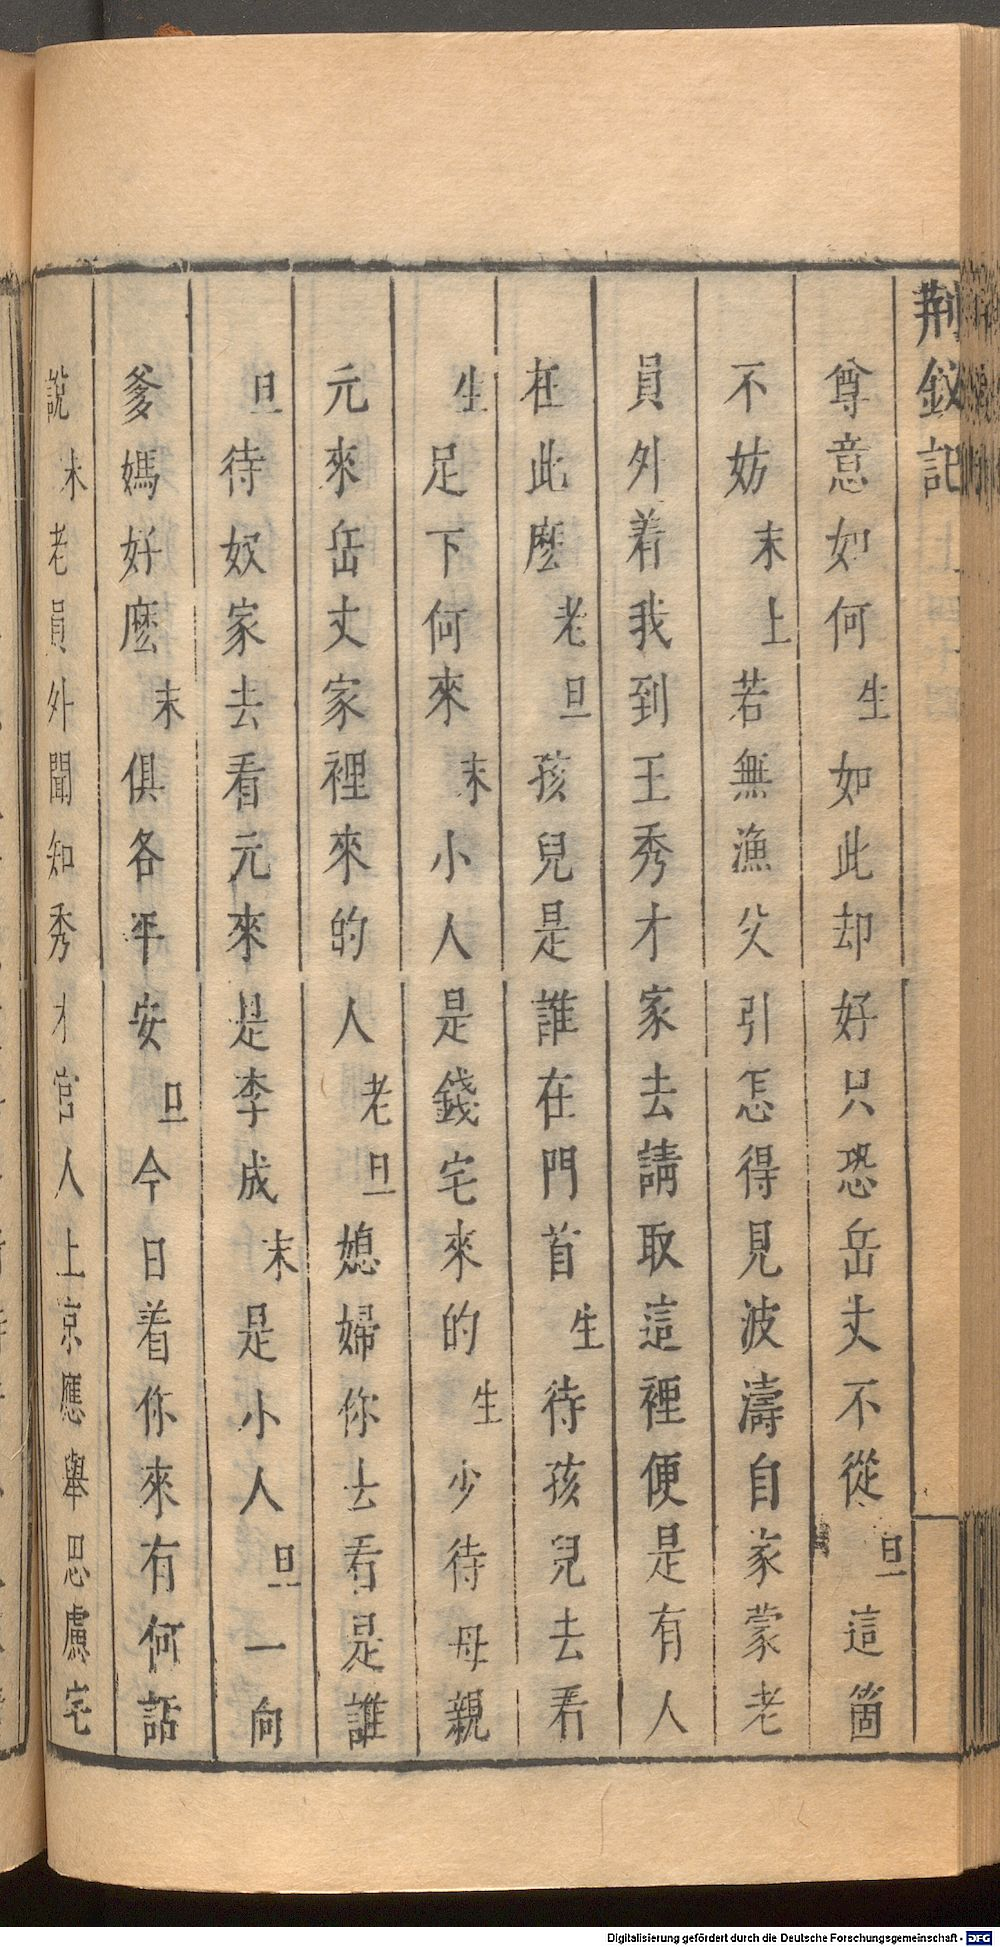 荆釵記
尊意如何生如此却好只恐岳丈不從旦這箇
不妨末上若無漁父引怎得見波濤自家蒙老
員外着我到王秀才家去請取這裡便是有人
在此麽老旦孩兒是誰在門首生待孩兒去看
生足下何來末小人是錢宅來的生少待母親
元來岳丈家裡來的人老旦媳婦你去看是誰
旦待奴家去看元來是李成末是小人旦一向
爹媽好麽末俱各平安旦今日着你來有何話
說末老員外聞知秀才官人上京應舉思慮宅
Digitalisierung gefördert durch die Deutsche Forschungsgemeinschaft - DFG